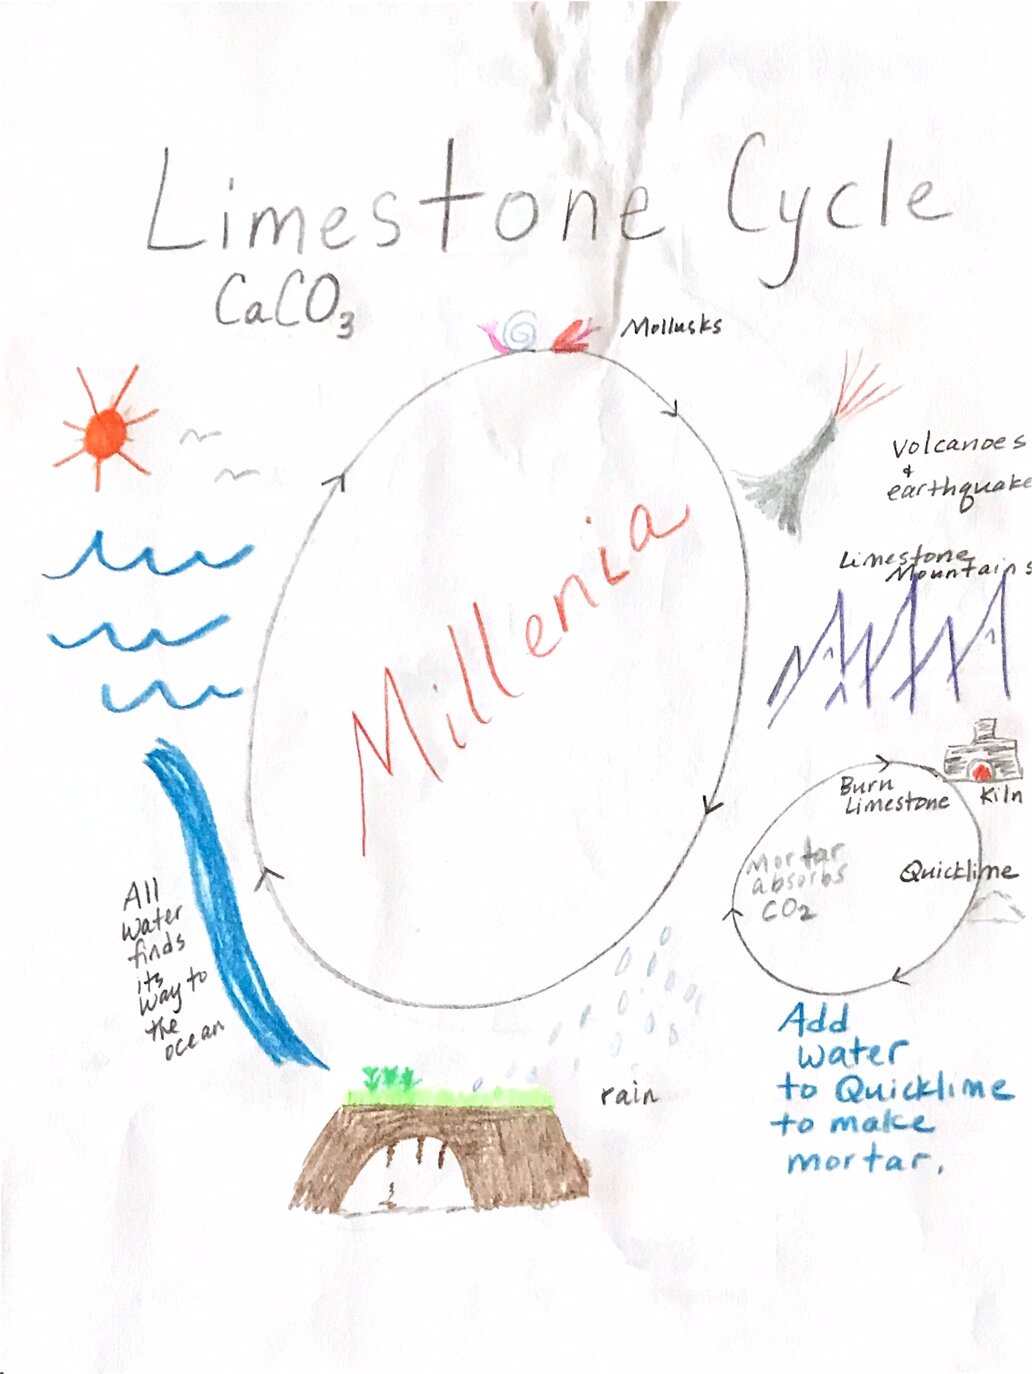 Limestone Cycle
CaCO3
Mollusks
Volcanoes
&
earthquake
Limestone
Mountains
Millenia
Burn
Limestone
Kiln
Quicklime
Mortar
absorbs
CO2
Add
water
to Quicklime
to make
mortar.
All
water
finds
its
way to
the
ocean
rain